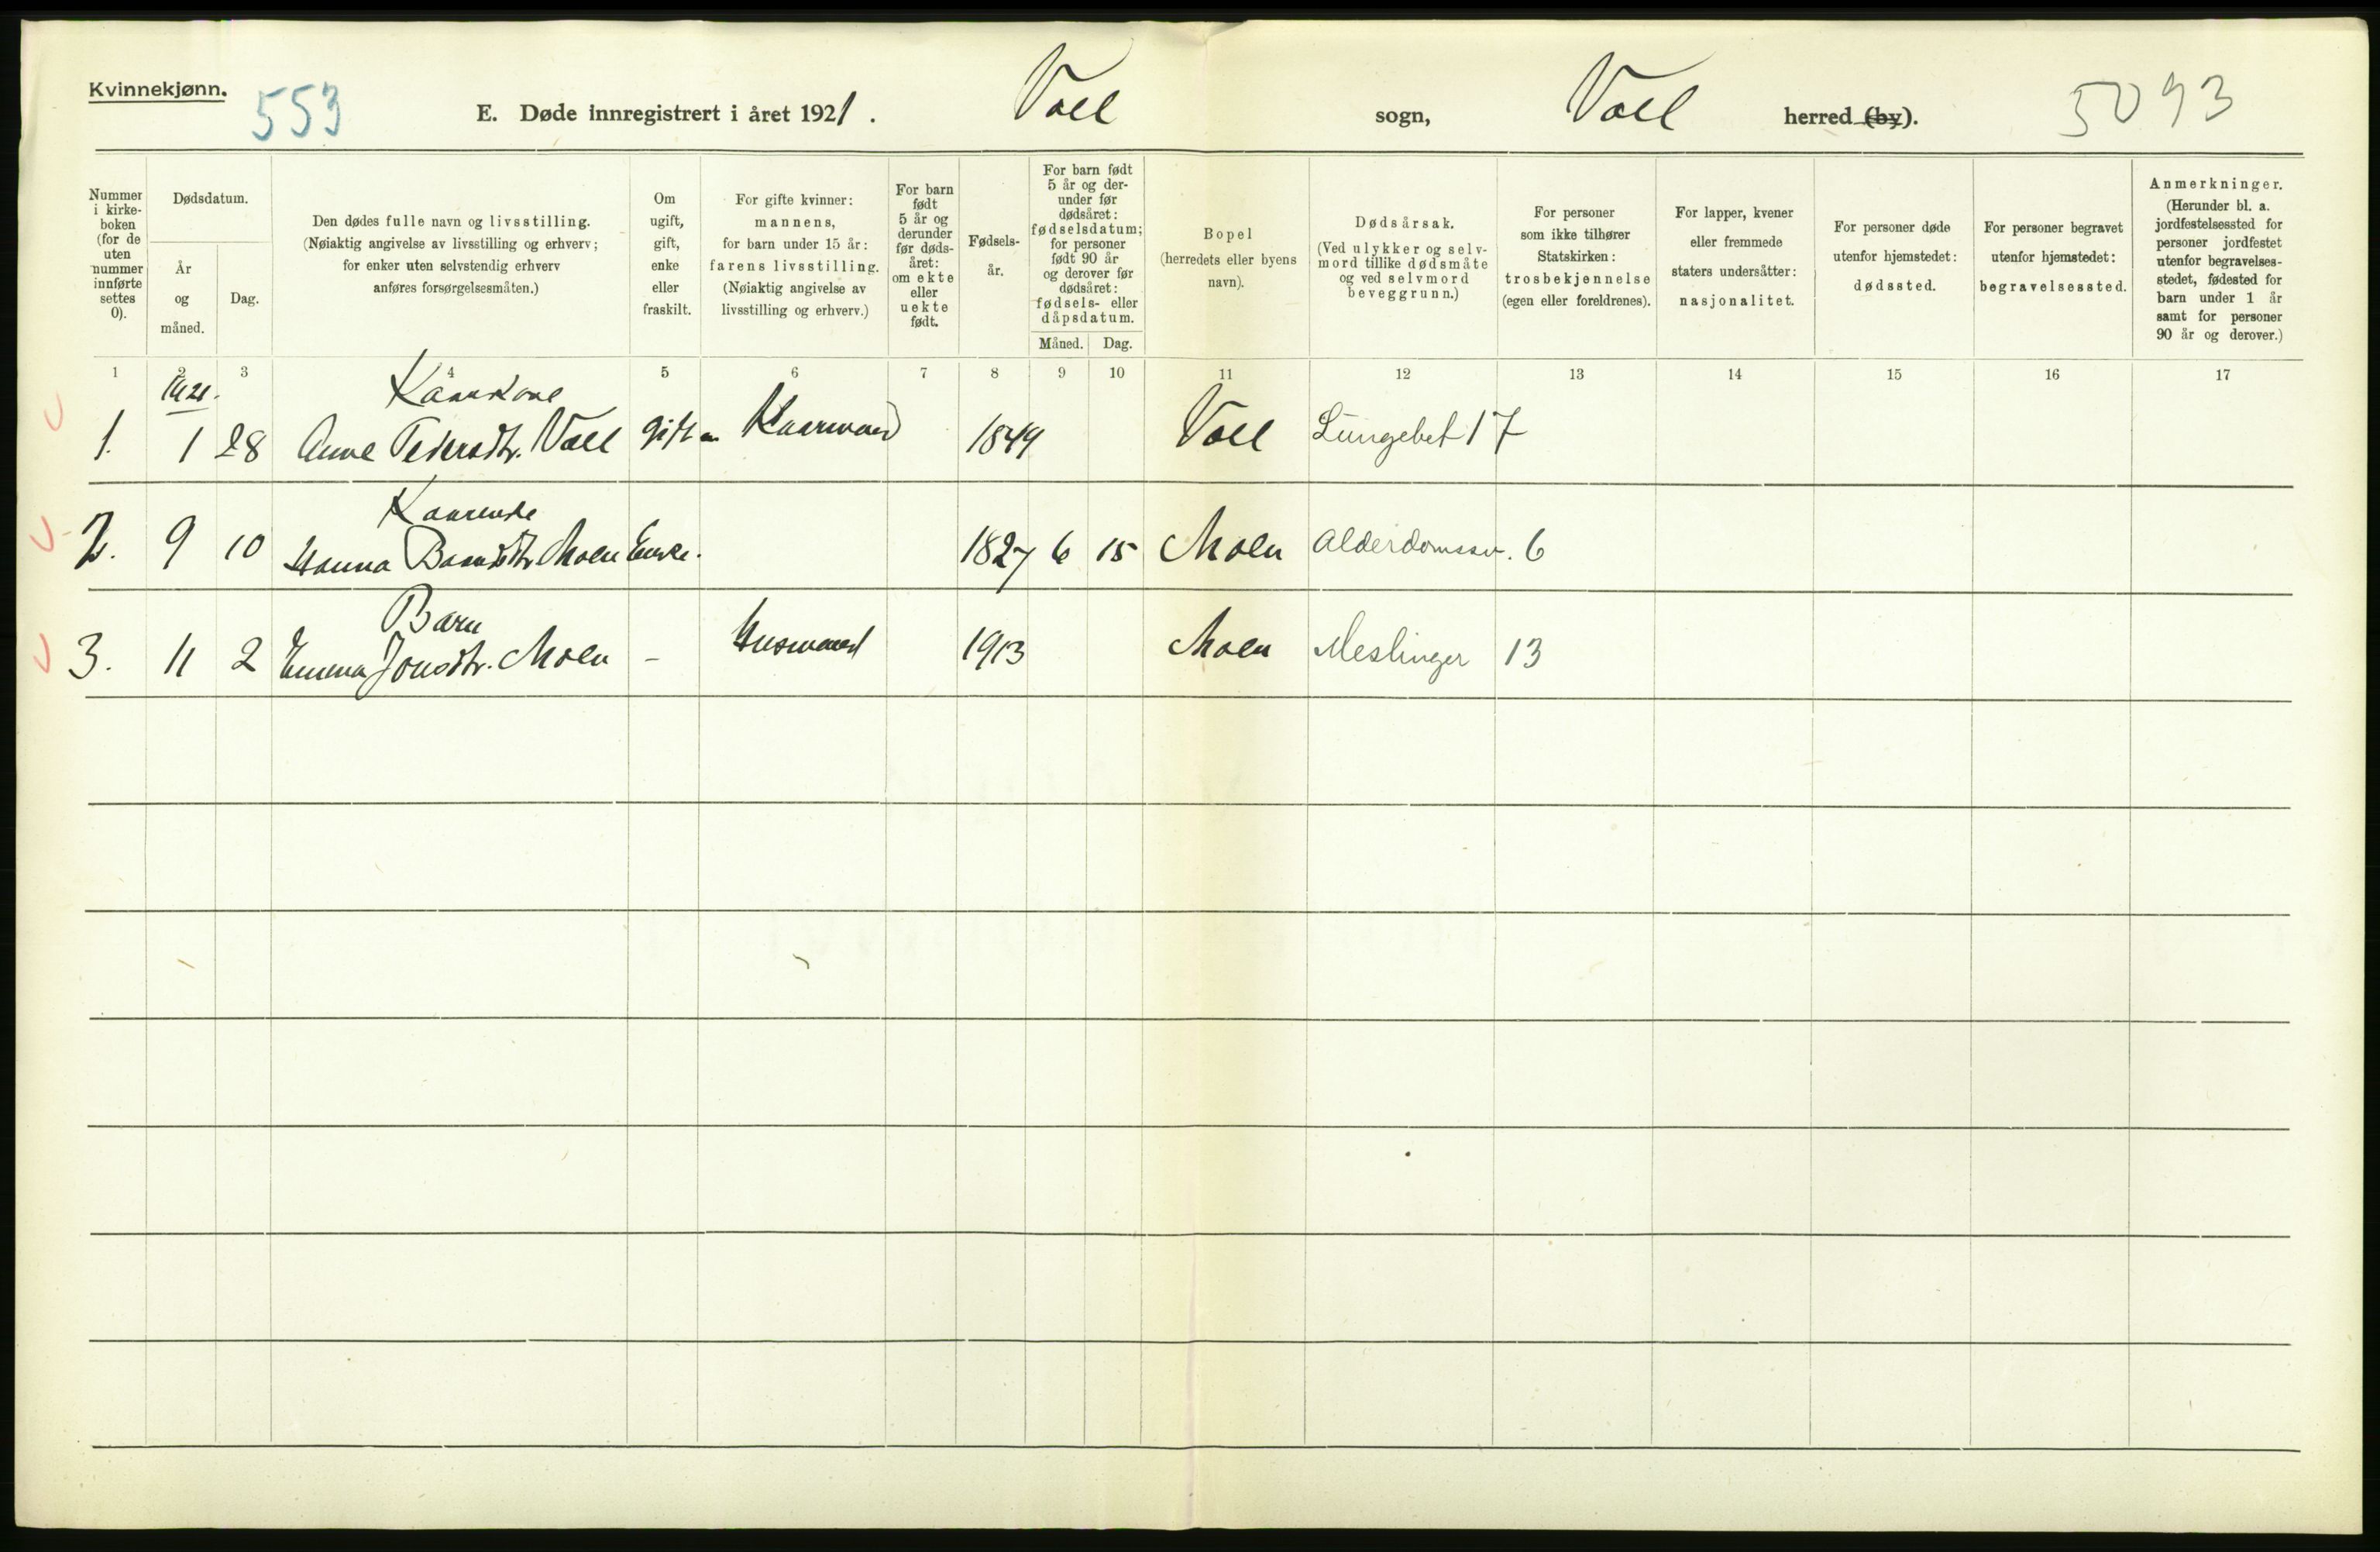 Kvinnekjønn.
553
E. Døde innregistrert i året 1921.
Voll
sogn,
Voll
herred (by).
5093
Nummer
i kirke-
boken
(for de
uten
nummer
innførte
settes
0).
Dødsdatum.
År
og
måned.
Dag.
Den dødes fulle navn og livsstilling.
(Nøiaktig angivelse av livsstilling og erhverv;
for enker uten selvstendig erhverv
anføres forsørgelsesmåten.)
Om
ugift,
gift,
enke
eller
fraskilt.
For gifte kvinner:
mannens,
for barn under 15 år:
farens livsstilling.
(Nøiaktig angivelse av
livsstilling og erhverv.)
For barn
født
5 år og
derunder
før døds-
året:
om ekte
eller
uekte
født.
Fødsels-
år.
For barn født
5 år og der-
under før
dødsåret:
fødselsdatum;
for personer
født 90 år
og derover før
dødsåret:
fødsels- eller
dåpsdatum.
Måned.
Dag.
Bopel
(herredets eller byens
navn).
Dødsårsak.
(Ved ulykker og selv-
mord tillike dødsmåte
og ved selvmord
beveggrunn.)
For personer
som ikke tilhører
Statskirken:
trosbekjennelse
(egen eller foreldrenes).
For lapper, kvener
eller fremmede
staters undersåtter:
nasjonalitet.
For personer døde
utenfor hjemstedet:
dødssted.
For personer begravet
utenfor hjemstedet:
begravelsessted.
Anmerkninger.
(Herunder bl. a.
jordfestelsessted for
personer jordfestet
utenfor begravelses-
stedet, fødested for
barn under 1 år
samt for personer
90 år og derover.)
1 2 3 4 5 6 7 8 9 10 11 12 13 14 15 16 17
1921.
Kaarkone
1. 1 28 Anne Pedersdtr. Voll gift m Kaarmand 1849 Voll Lungebet 17
Kaarenke
2. 9 10 Hanna Moen Enke. 1827 6 15 Moen Alderdomssv. 6
Barn
3. 11 2 Emma Jonsdtr. Moen - Husmand 1913 Moen Meslinger 13